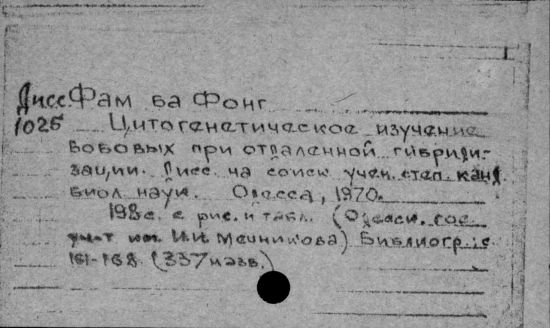 Дисс Фам ба Фонг
1025 Цитогенетическое изучение
бобовых при отдаленной гибриди-
зации. Дисс. на соиск. учен. степ. канд.
биол. наук. Одесса, 1970.
198с. с рис. и табл. (Одесск. гос.
ун-т им. И.И. Мечникова) Библиогр.: с.
161-168 (337 назв.)